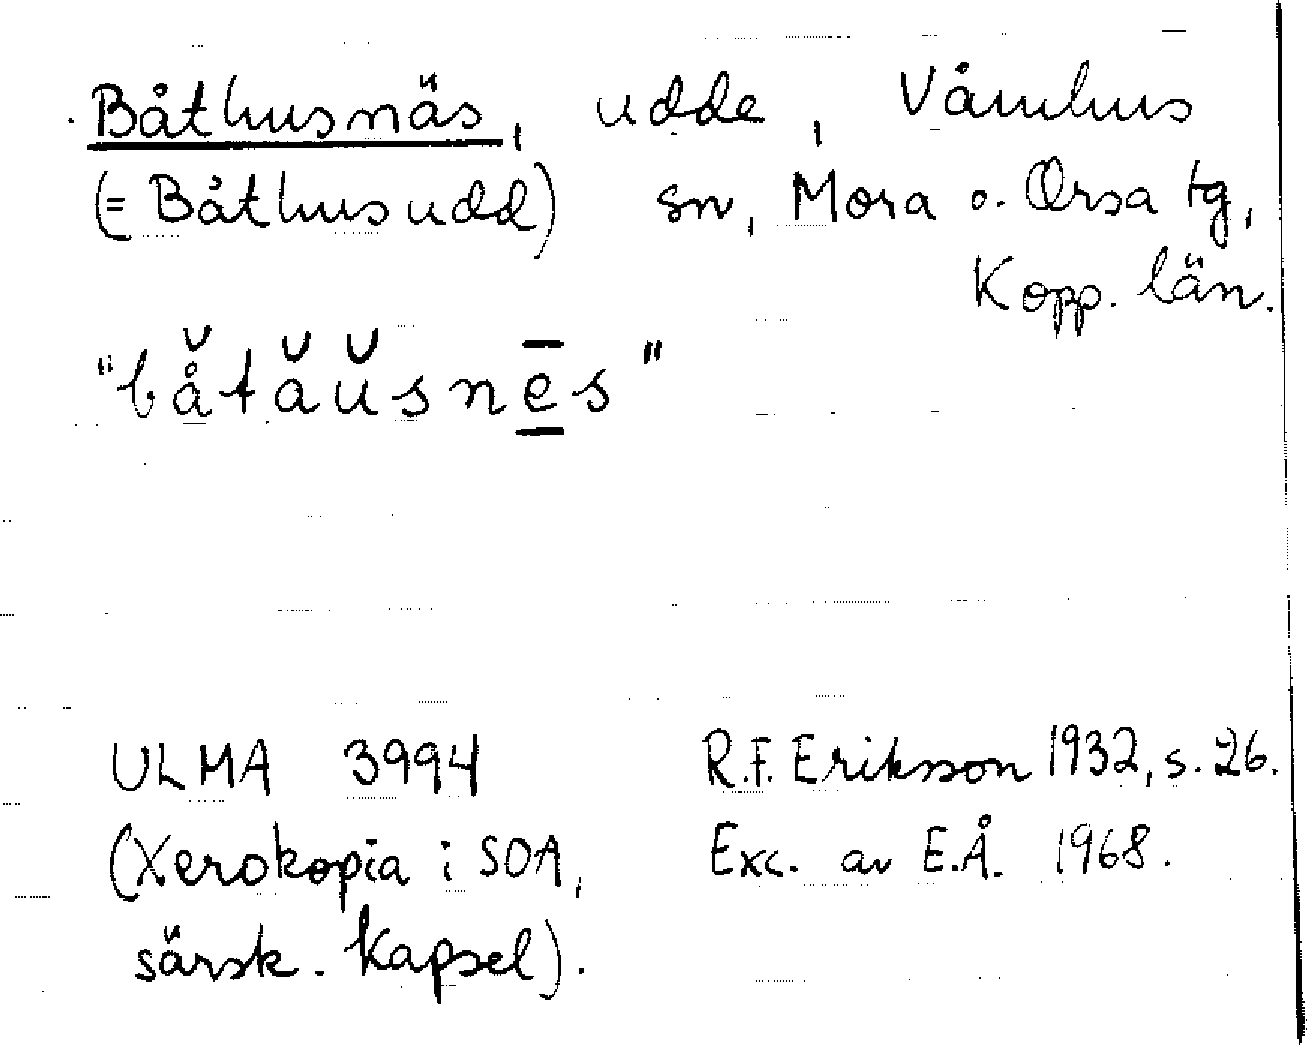 Båthusnäs, udde, Våmhus
(= Båthusudd) sn, Mora o. Orsa tg,
Kopp. län.
"bå̆tăŭsnē̲s"
ULMA 3994 R.F. Eriksson 1932, s. 26.
(Xerokopia i SOA, Exc. av E.Å. 1968.
särsk. kapsel).